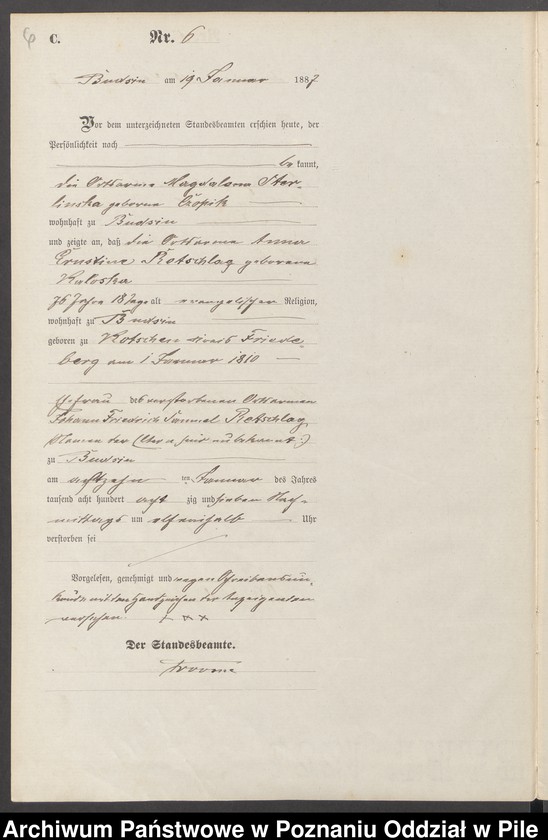 6
C. Nr. 6
Budsin am 19 Januar 1887
Vor dem unterzeichneten Standesbeamten erschien heute, der
Persönlichkeit nach
bekannt,
die Ortsarme Magdalena Ster-
linska geborne Czopik
wohnhaft zu Budsin
und zeigte an, daß die Ortsarme Anna
Ernstine Retschlag geborene
Kaloska
76 Jahre 18 Tage alt evangelischer Religion,
wohnhaft zu Budsin
geboren zu Kotschen Kreis Friede-
berg am 1 Januar 1810
Ehefrau des verstorbenen Ortsarmen
Johann Friedrich Samuel Retschlag
Namen der unbekannt :)
zu Budsin
am achtzehn ten Januar des Jahres
tausend acht hundert acht zig und sieben Nach-
mittags um elfeinhalb Uhr
verstorben sei
Vorgelesen, genehmigt und wegen Schreibensun-
kunde mit den Handzeichen der Anzeigenden
versehen. + x x
Der Standesbeamte.
Archiwum Państwowe w Poznaniu Oddział w Pile